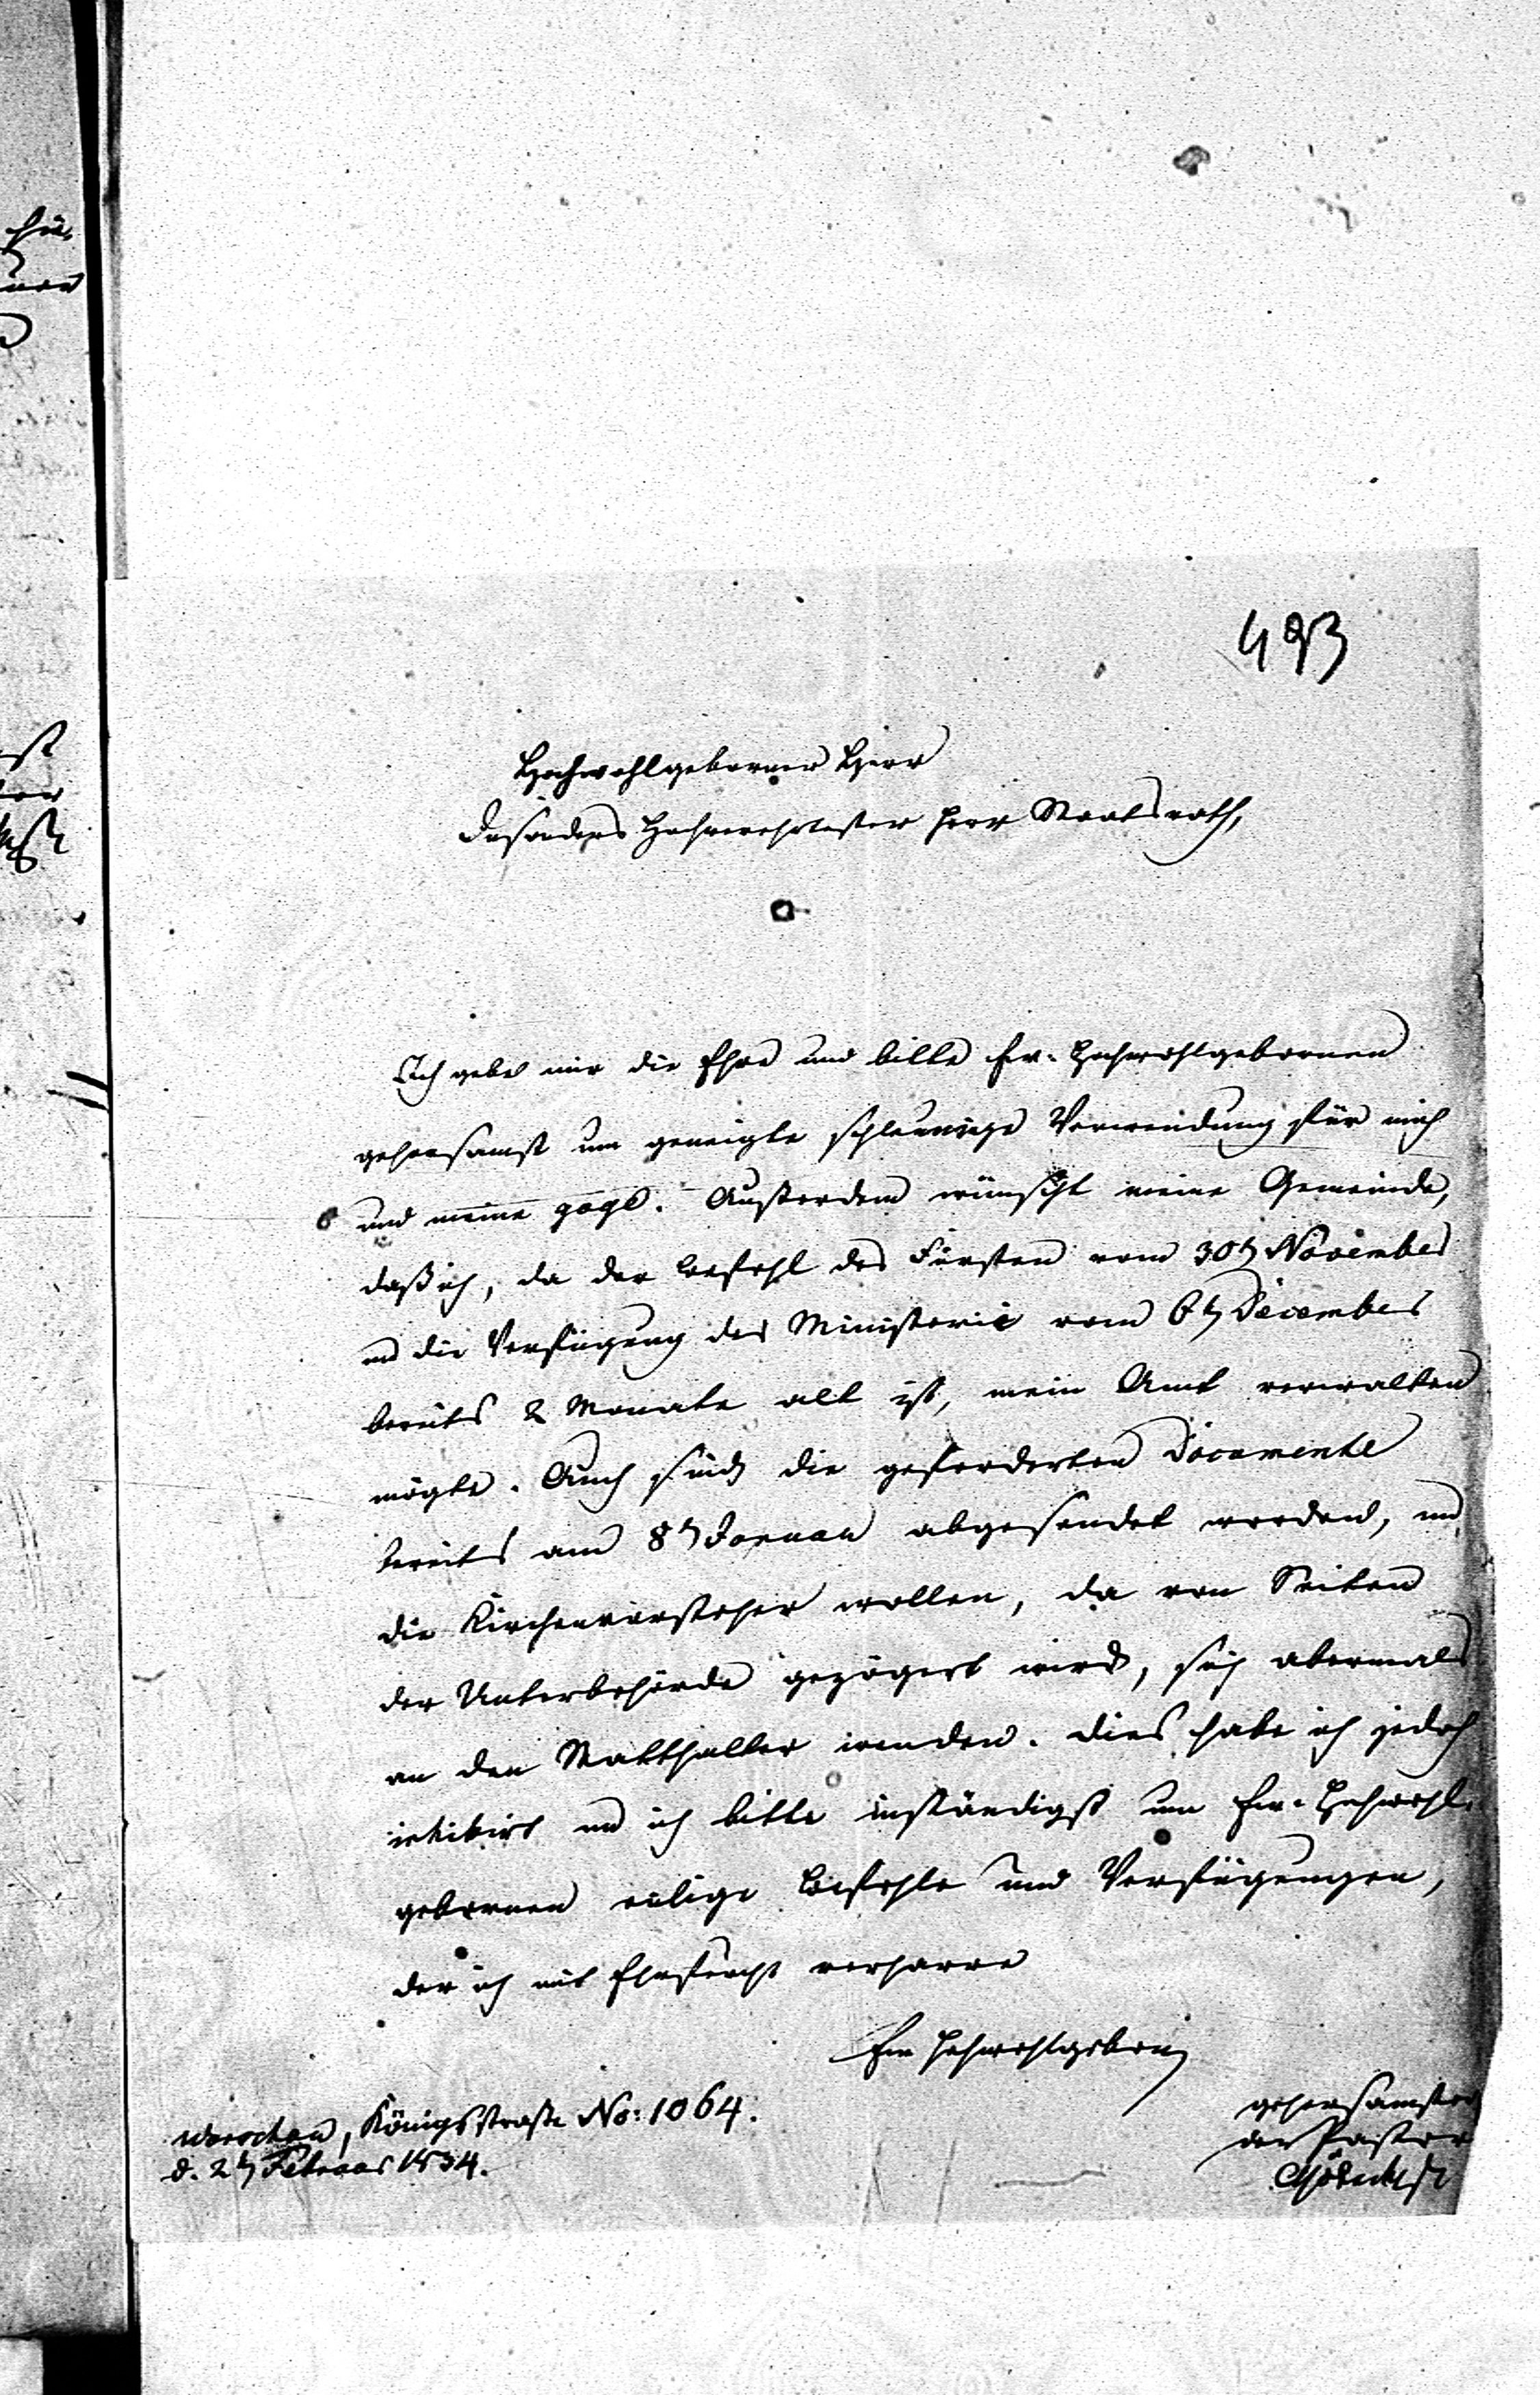 493
Hochwohlgeborner Herr
Besonders Hochverehrtester Herr Staatsrath,
Ich gebe mir die Ehre und bitte Ew. Hochwohlgebornen
gehorsamst um geneigte schleunige Verwendung für mich
und meine . Ausserdem wünscht meine Gemeinde,
daß ich, da der Befehl des Fürsten vom 30t November
und die Verfügung des Ministerii vom 6t December
bereits 2 Monate alt ist, mein Amt verwalten
mögte. Auch sind die geforderten Documente
bereits am 8t Januar abgesendet worden, und
die Kirchenvorsteher wollen, da von Seiten
der Unterbehörde gezögert wird, sich abermals
an den Statthalter wenden. Dies habe ich jedoch
inhibirt und ich bitte inständigst um Ew. Hochwohl-
gebornen eilige Befehle und Verfügungen,
der ich mit Ehrfurcht verharre
Ew Hochwohlgeborn
gehorsamster
der Pastor
Warschau, Königsstraße No: 1064.
d. 2t Februar 1834.